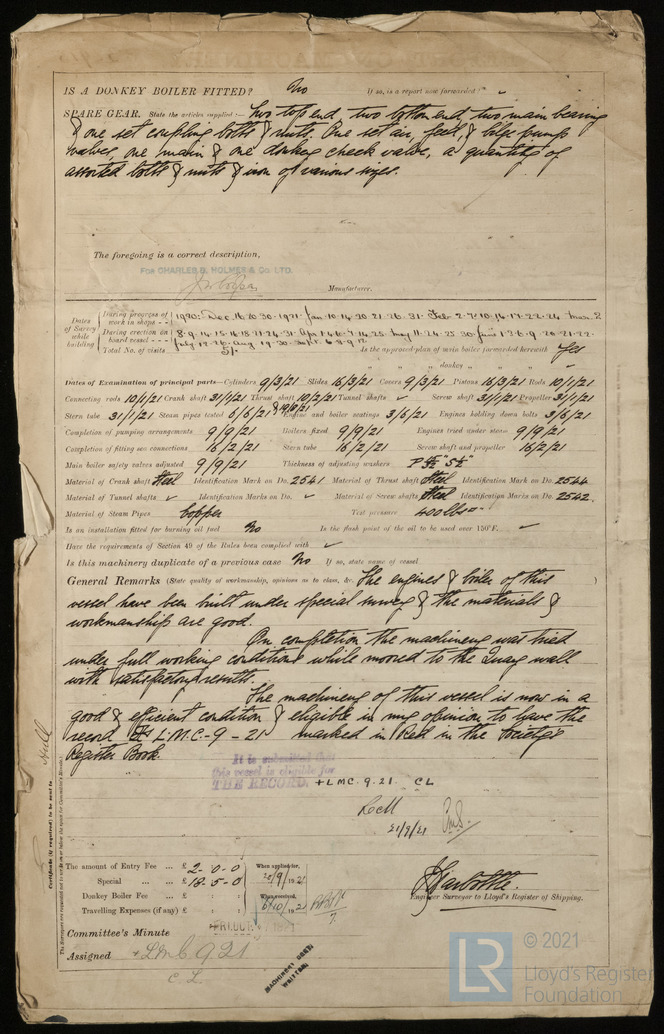 IS A DONKEY BOILER FITTED? No If so, is a report now forwarded?
SPARE GEAR. State the articles supplied:— Two top end, two bottom end, two main bearing
& one set coupling bolts & nuts. One set air, feed, & bilge pump
valves, one main & one donkey check valve, a quantity of
assorted bolts & nuts & iron of various sizes.
The foregoing is a correct description,
FOR CHARLES D. HOLMES & Co. LTD.
Manufacturer.
Dates of Survey while building
During progress of work in shops - - 1920: Dec. 16 20 30 - 1921 - Jan 10 14 20 21 26 31 - Feb 2 7 10 16 17 22 24 Mar 2
During erection on board vessel - - - 8 9 14 15 16 18 21 24 31 - Apr 1 4 6 7 14 25 May 11 24 25 30 June 1 3 6 9 20 21 22
July 12 26 Aug 19 30 Sept. 6 8 9 12
Total No. of visits 51 Is the approved plan of main boiler forwarded herewith Yes
" " " donkey " " "
Dates of Examination of principal parts—Cylinders 9/3/21 Slides 16/3/21 Covers 9/3/21 Pistons 16/3/21 Rods 10/1/21
Connecting rods 10/1/21 Crank shaft 31/1/21 Thrust shaft 10/2/21 Tunnel shafts ✓ Screw shaft 31/1/21 Propeller 31/1/21
Stern tube 31/1/21 Steam pipes tested 6/6/21 & 19/8/21 Engine and boiler seatings 3/6/21 Engines holding down bolts 3/6/21
Completion of pumping arrangements 9/9/21 Boilers fixed 9/9/21 Engines tried under steam 9/9/21
Completion of fitting sea connections 16/2/21 Stern tube 16/2/21 Screw shaft and propeller 16/2/21
Main boiler safety valves adjusted 9/9/21 Thickness of adjusting washers
Material of Crank shaft Steel Identification Mark on Do. 2541 Material of Thrust shaft Steel Identification Mark on Do. 2544
Material of Tunnel shafts ✓ Identification Marks on Do. ✓ Material of Screw shafts Steel Identification Marks on Do. 2542
Material of Steam Pipes Copper Test pressure 400 lbs
Is an installation fitted for burning oil fuel No Is the flash point of the oil to be used over 150°F. ✓
Have the requirements of Section 49 of the Rules been complied with ✓
Is this machinery duplicate of a previous case No If so, state name of vessel
General Remarks (State quality of workmanship, opinions as to class, &c. The engines & boiler of this
vessel have been built under special survey & the materials &
workmanship are good.
On completion the machinery was tried
under full working conditions while moored to the Quay wall
with satisfactory results.
The machinery of this vessel is now in a
good & efficient condition & eligible in my opinion to have the
record + L.M.C. - 9 - 21 marked in Red in the Society's
Register Book.
It is submitted that
this vessel is eligible for
THE RECORD. + LMC. 9. 21. CL
21/9/21
Certificate (if required) to be sent to Hull
The Surveyors are requested not to write on or below the space for Committee's Minute.
The amount of Entry Fee ... £ 2 - 0 - 0 When applied for,
Special ... ... £ 18 - 5 - 0 20/9/1921
Donkey Boiler Fee ... £ : : When received,
Travelling Expenses (if any) £ : : 6/10/1921
Engineer Surveyor to Lloyd's Register of Shipping.
Committee's Minute
Assigned + L.M.C. 9 21
C. L.
MACHINERY CERT. WRITTEN
LR
© 2021
Lloyd's Register
Foundation